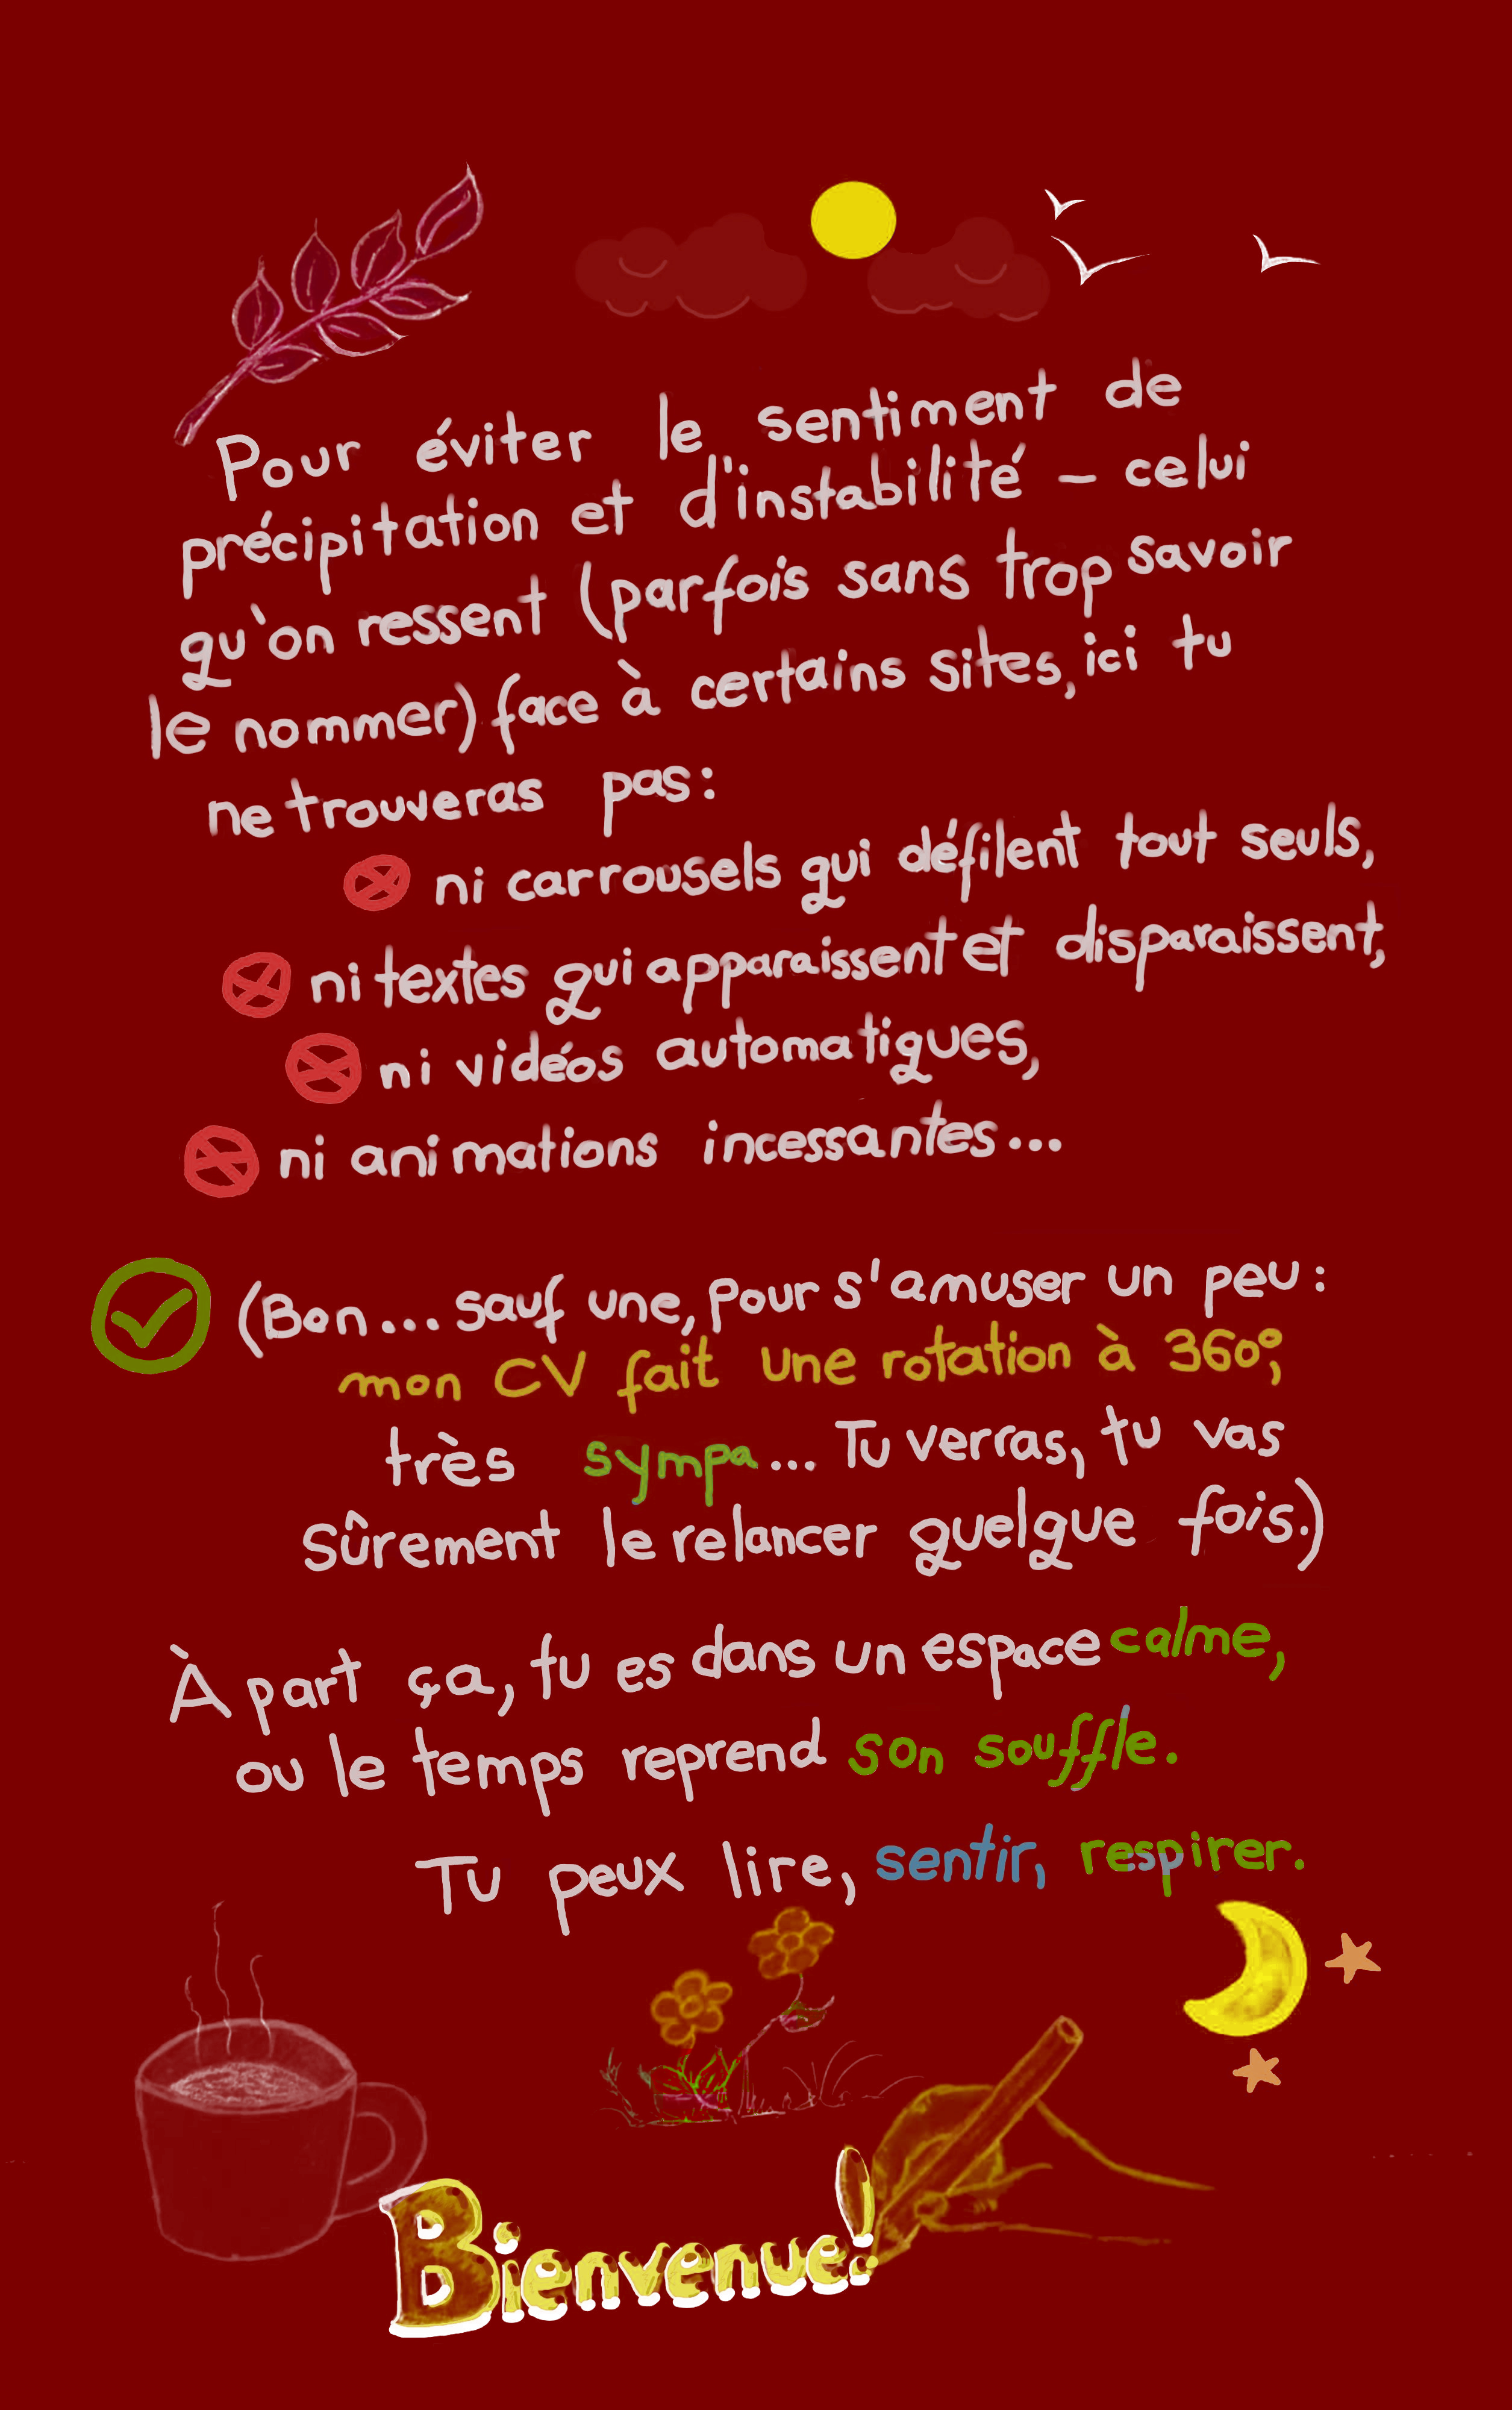 Pour éviter le sentiment de
précipitation et d'instabilité – celui
qu'on ressent (parfois sans trop savoir
le nommer) face à certains sites, ici tu
ne trouveras pas:
ni carrousels qui défilent tout seuls,
ni textes qui apparaissent et disparaissent,
ni vidéos automatiques,
ni animations incessantes...
(Bon... sauf une, pour s'amuser un peu:
mon CV fait une rotation à 360°,
très sympa... Tu verras, tu vas
sûrement le relancer quelque fois.)
À part ça, tu es dans un espace calme,
ou le temps reprend son souffle.
Tu peux lire, sentir, respirer.
Bienvenue!